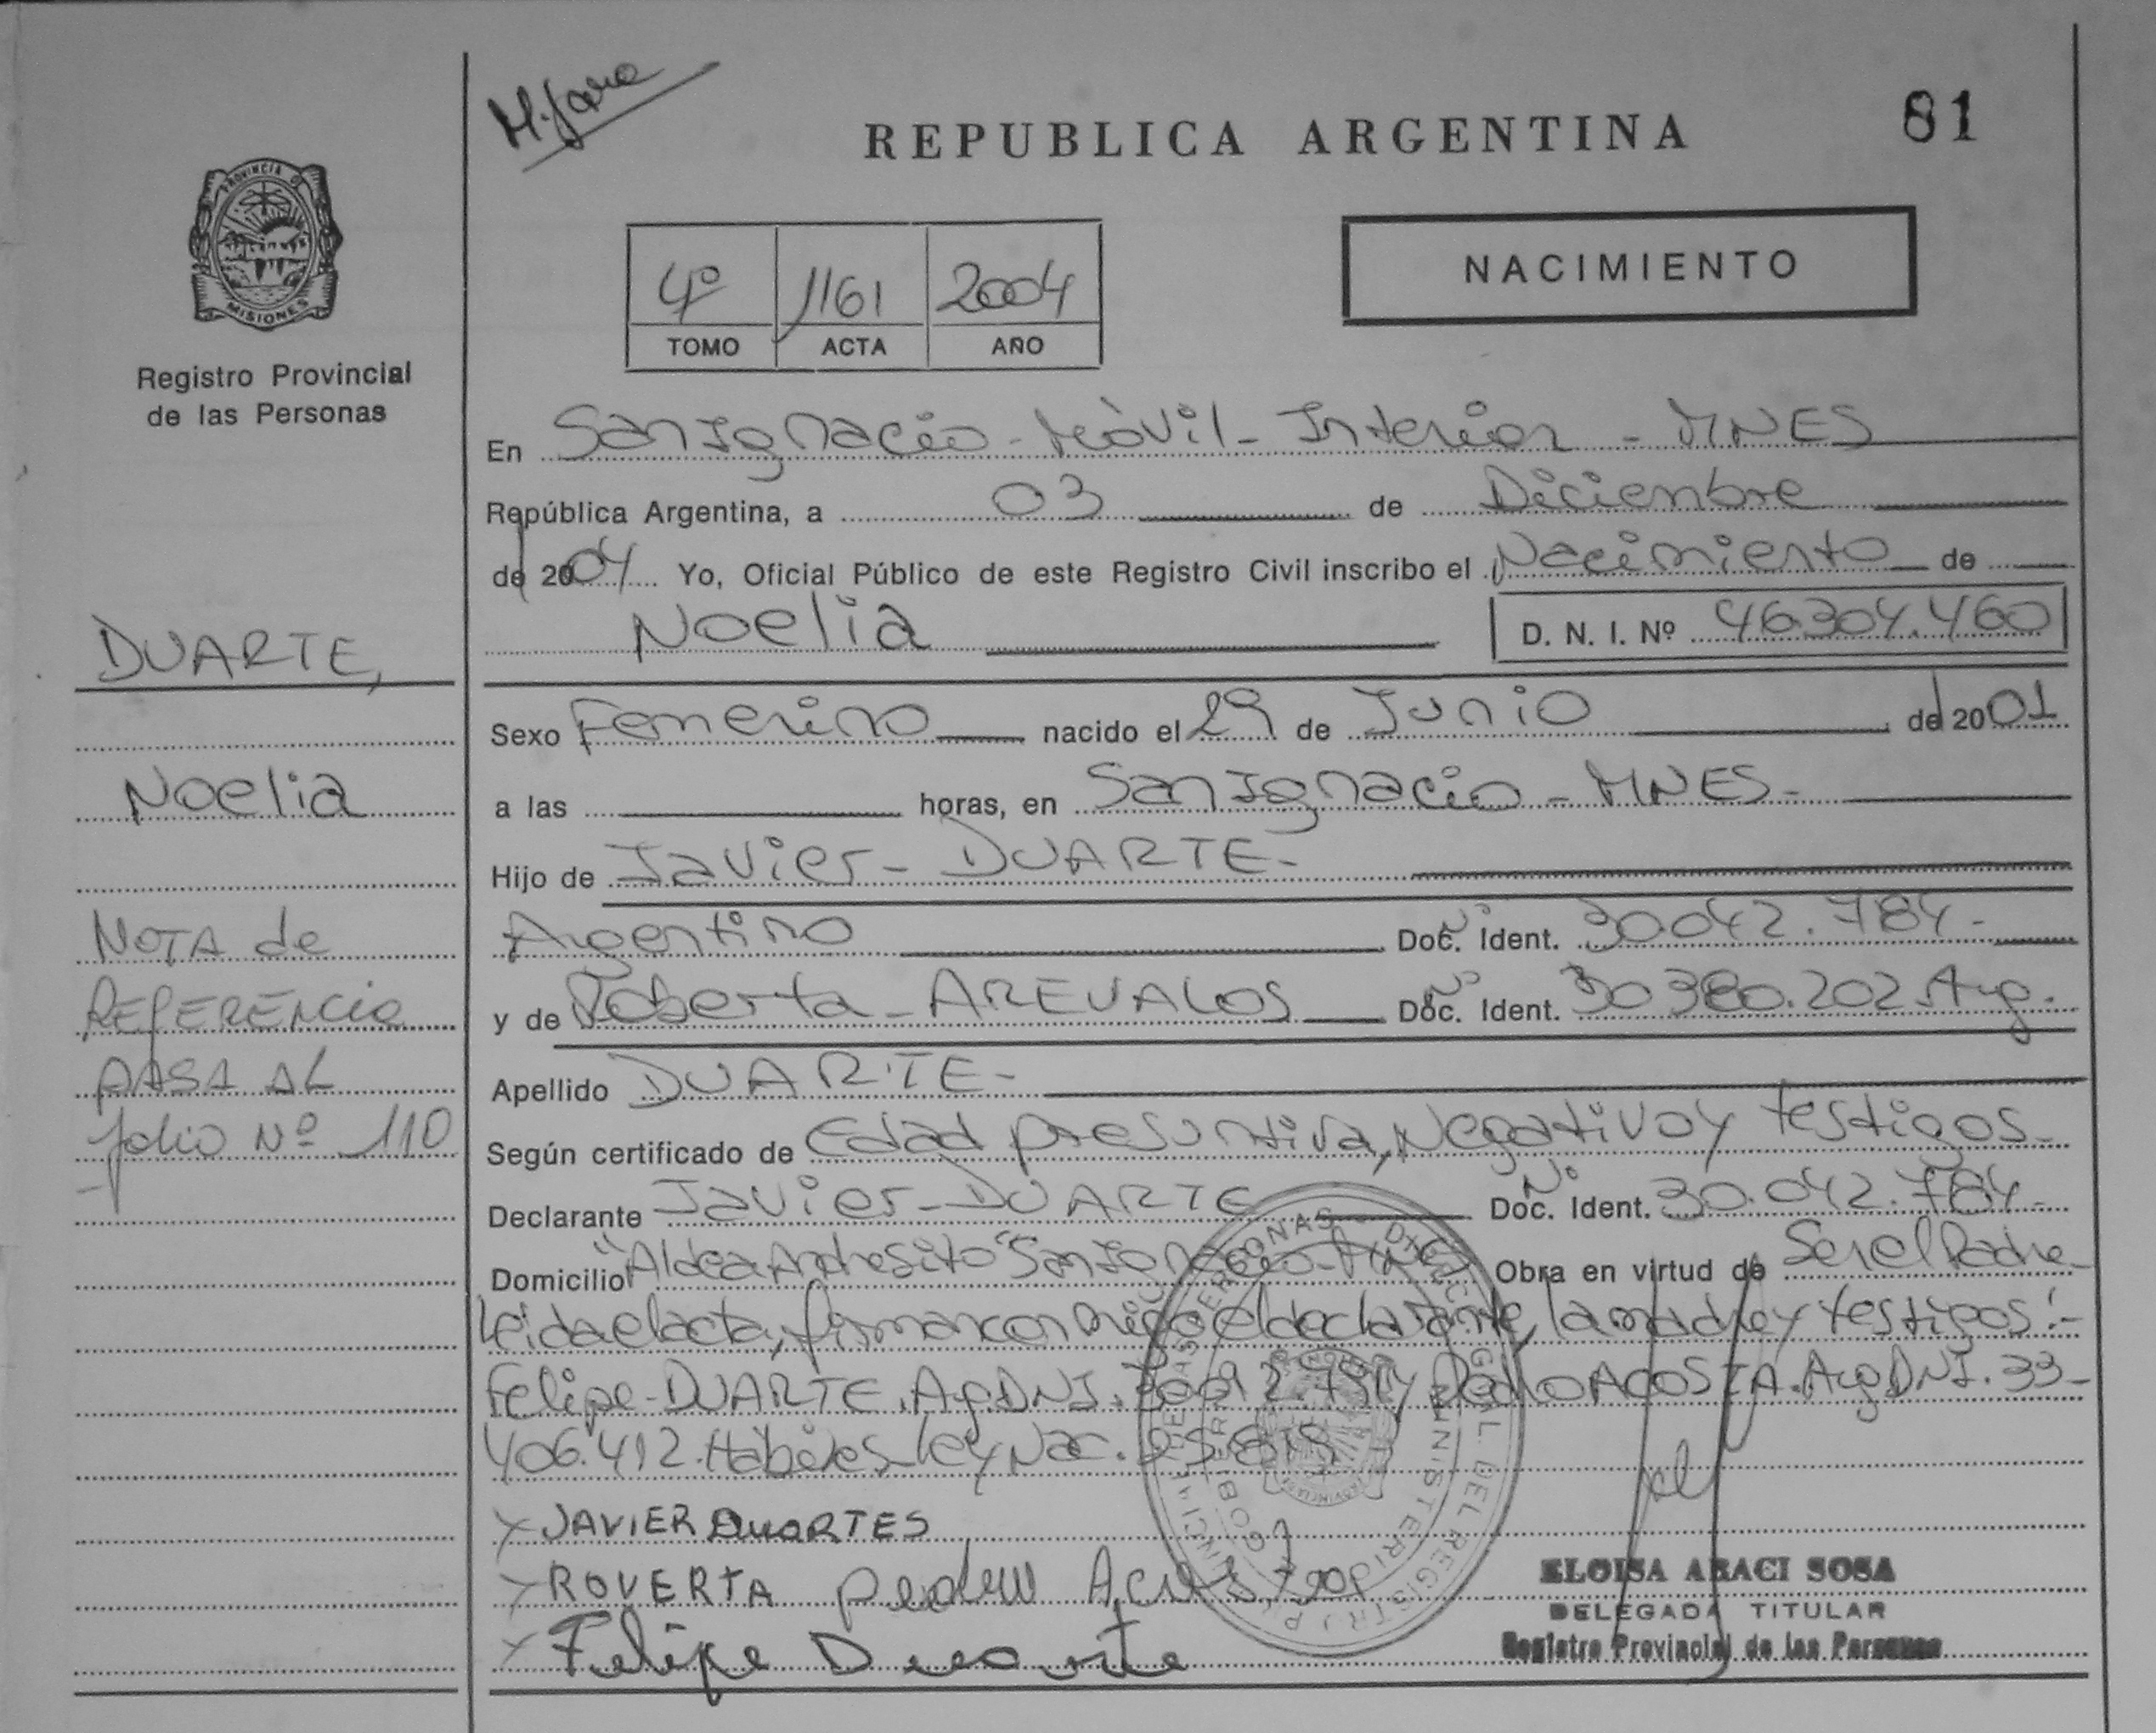 M. Jara
REPUBLICA ARGENTINA
81
PROVINCIA D
MISIONES
Registro Provincial
de las Personas
4º 1161 2004
TOMO ACTA AÑO
NACIMIENTO
En San Ignacio - Móvil - Interior - MNES
República Argentina, a 03 de Diciembre
de 2004 Yo, Oficial Público de este Registro Civil inscribo el Nacimiento de
Noelia D. N. I. Nº 46304.460
DUARTE,
Noelia
NOTA de
REFERENCIA
PASA AL
folio Nº 110
Sexo Femenino nacido el 29 de Junio de 2001
a las horas, en San Ignacio - MNES -
Hijo de Javier - DUARTE -
Argentino Doc. Nº Ident. 30.042.784 -
y de Roberta - AREVALOS Doc. Nº Ident. 30380.202 Arg.
Apellido DUARTE -
Según certificado de Edad presuntiva, Negativo y Testigos -
Declarante Javier - DUARTE Doc. Nº Ident. 30.042.784 -
Domicilio "Aldea Andresito" San Ignacio - MNES Obra en virtud de Ser el Padre -
Leida el acta, firman conmigo el declarante, la madre y testigos: -
Felipe - DUARTE. Arg. DNI. y Pedro ACOSTA. Arg. DNI. 33 -
406.412. Hábiles Ley Nac.
x JAVIER DUARTES
x ROVERTA
x Felipe Duarte
ELOISA ARACI SOSA
DELEGADA TITULAR
Registro Provincial de las Personas